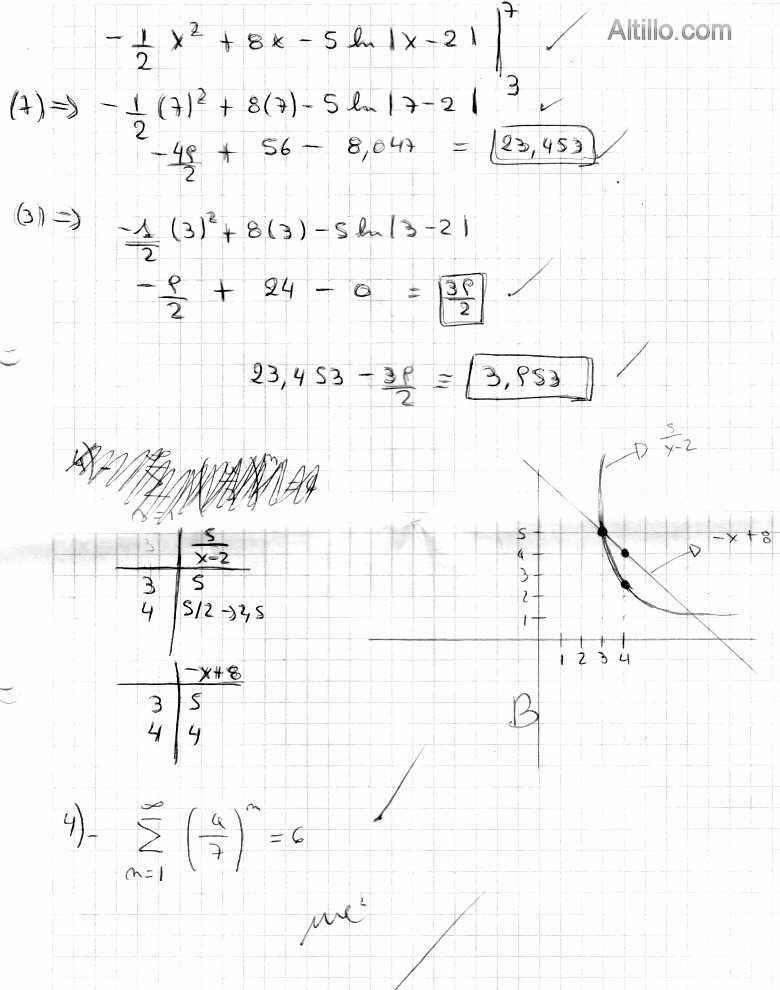 Altillo.com
-1/2 x² + 8x - 5 ln |x-2| |₃⁷
(7) => -1/2 (7)² + 8(7) - 5 ln |7-2|
-49/2 + 56 - 8,047 = 23,453
(3) => -1/2 (3)² + 8(3) - 5 ln |3-2|
-9/2 + 24 - 0 = 39/2
23,453 - 39/2 = 3,953
5/x-2
3 5
4 5/2 → 2,5
-x+8
3 5
4 4
5/x-2
-x+8
5
4
3
2
1
1 2 3 4
B
4)- ∞∑n=1 (a/7)ⁿ = 6